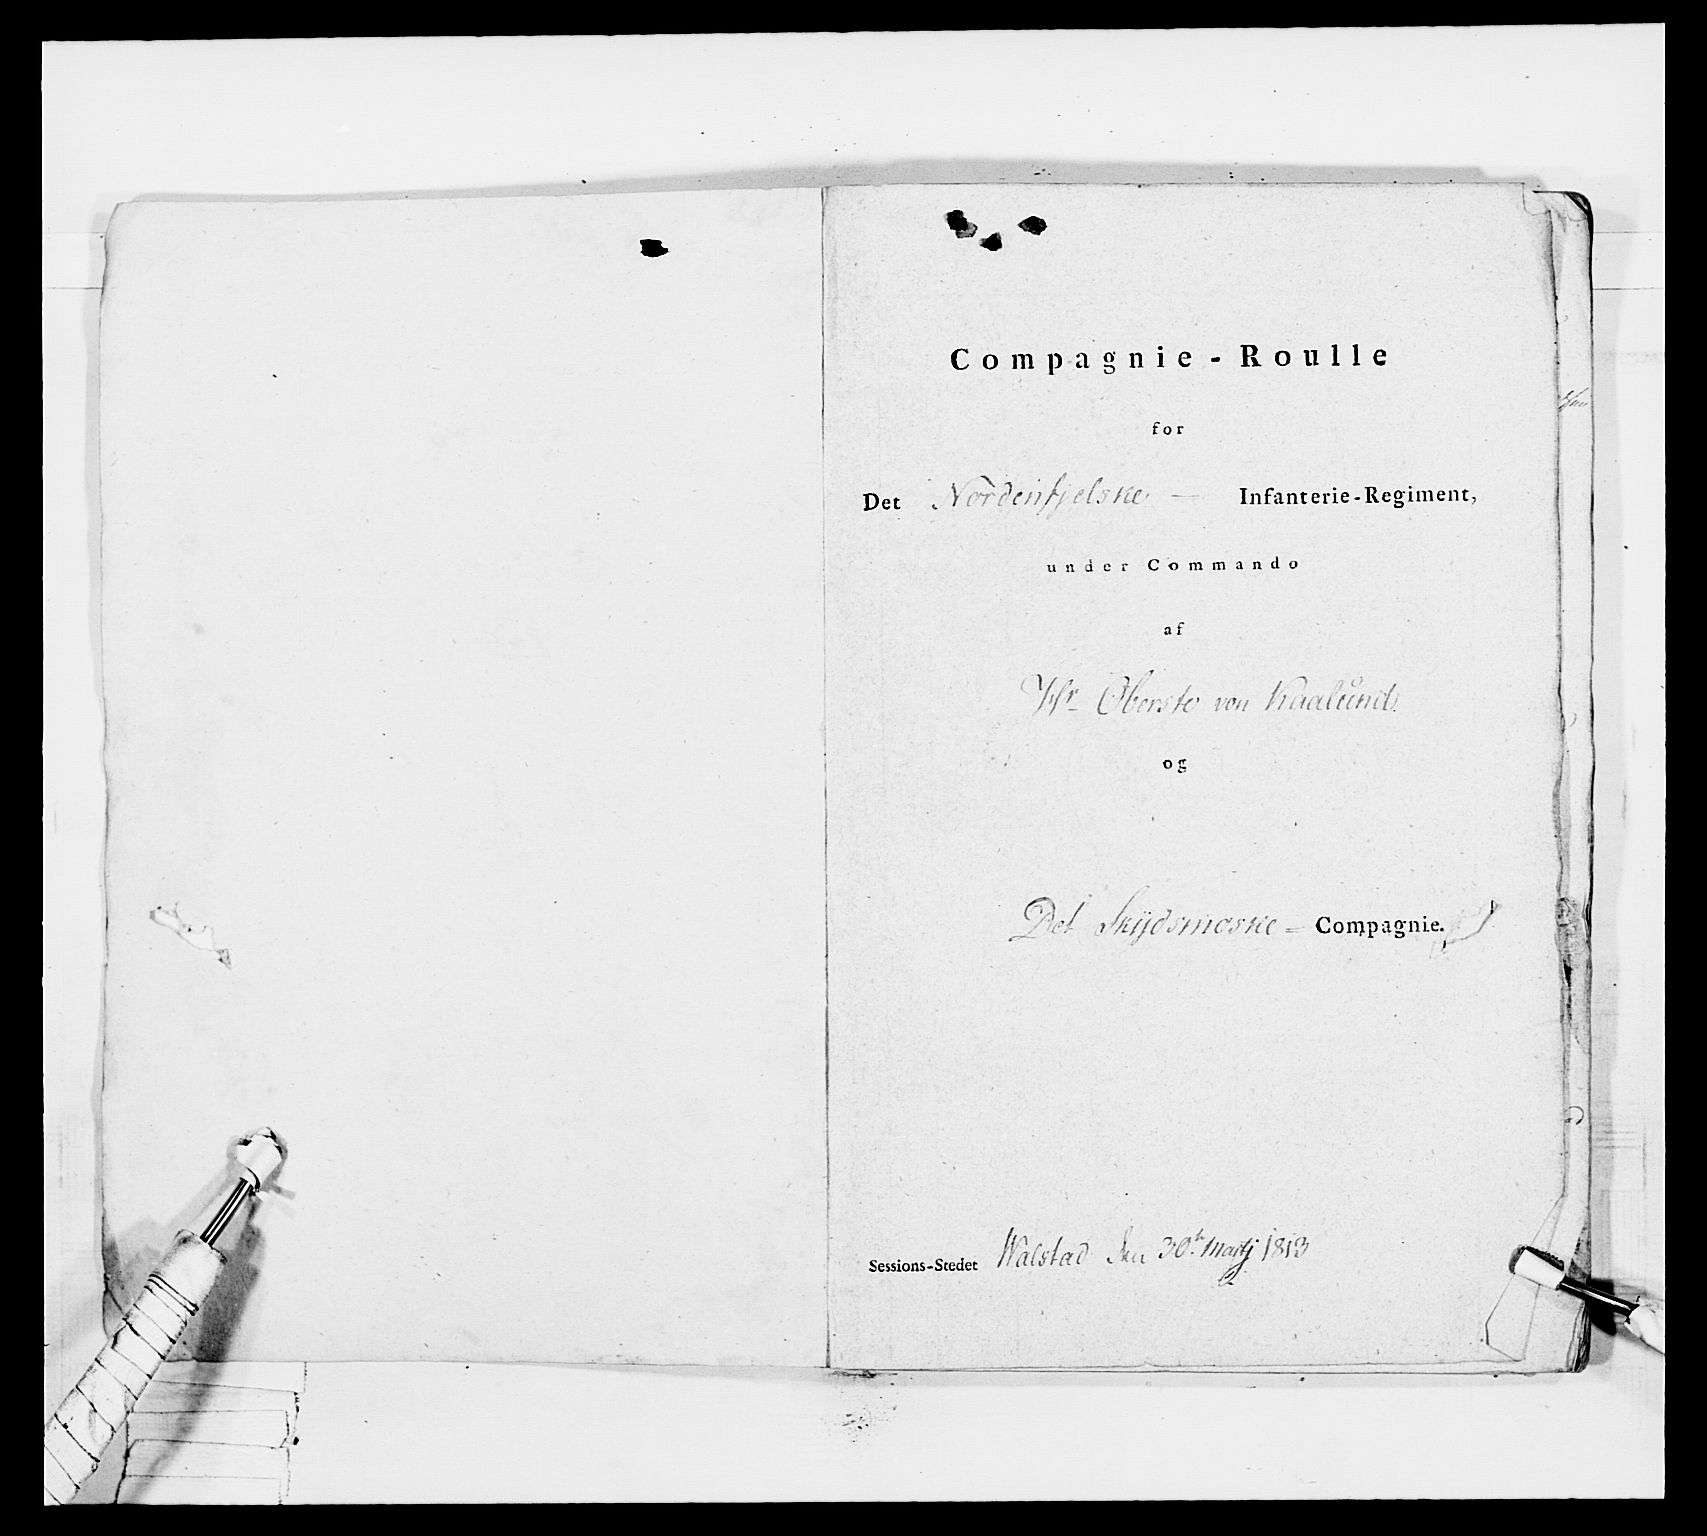 Compagnie-Roulle
for
Det Nordenfjelske — Infanterie-Regiment,
under Commando
af
Hr Oberste von Kaalund
og
Det Skijdsmoske = Compagnie.
Sessions-Stedet Walstad den 30te Martj 1813